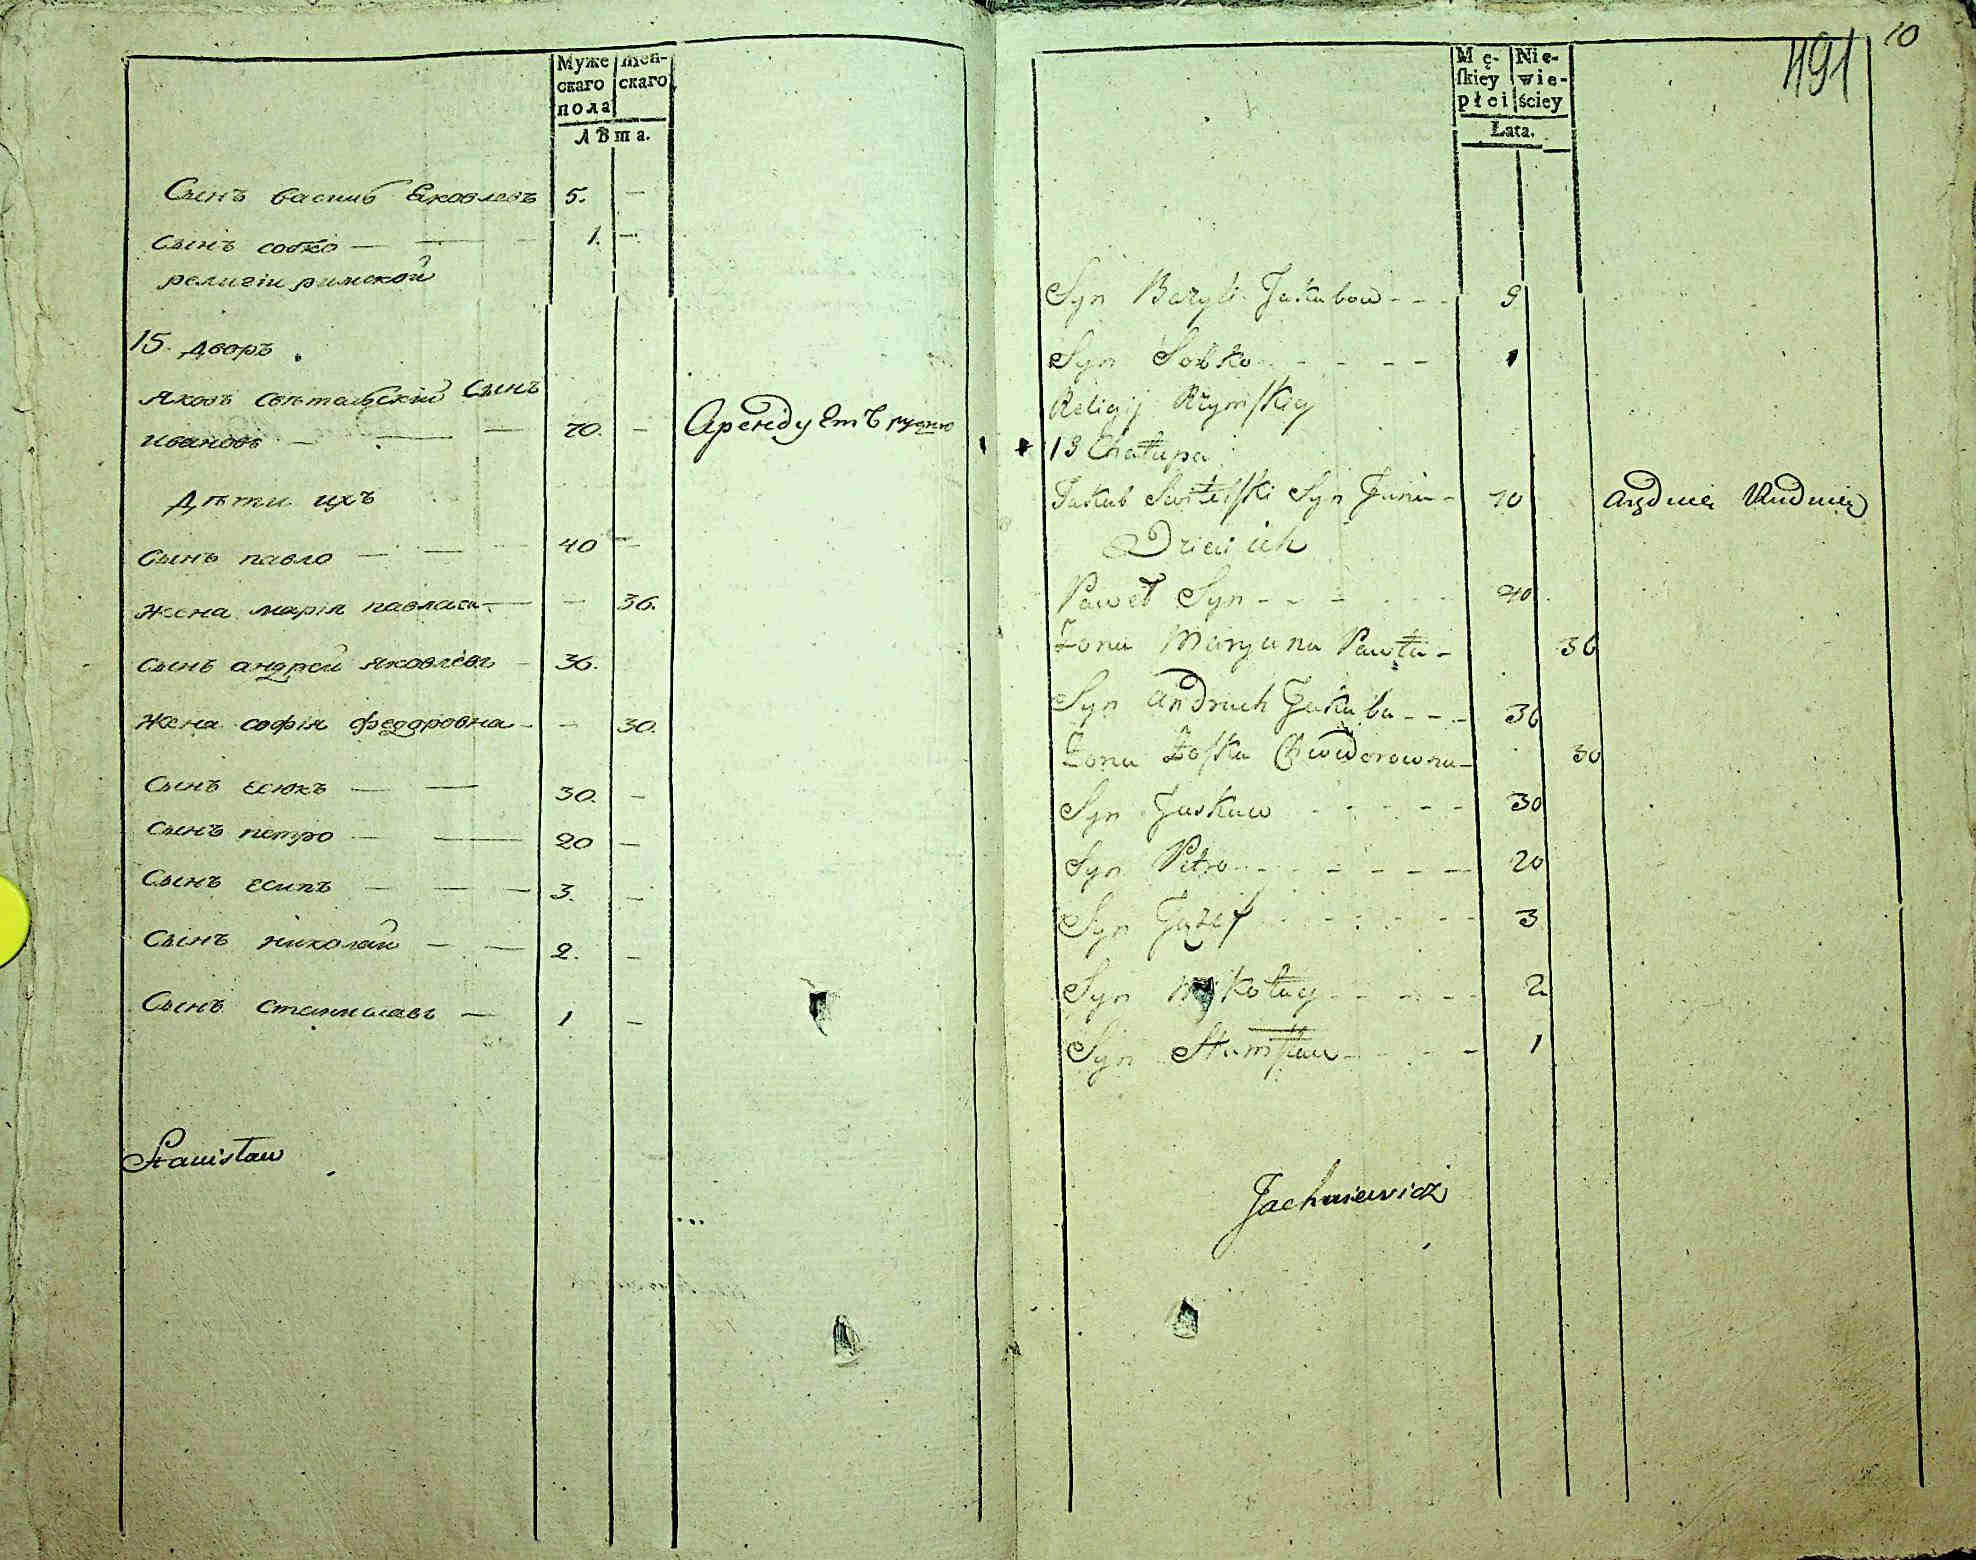 Муже
скаго
пола
Жен-
скаго
Лѣта.
Сынъ василь Яковлевъ 5. —
Сынъ собко — — — 1. —
религіи римской
15. дворъ
Яковъ Свѣтельскій Сынъ
Ивановъ — — — 70. — Арендуетъ рудню
Дѣти ихъ
Сынъ павло — — — 40 —
Жена марія павлова — — 36.
Сынъ андрей яковлевъ — 36.
Жена софія федоровна — — 30.
Сынъ есюкъ — — 30. —
Сынъ петро — — 20 —
Сынъ есипъ — — — 3. —
Сынъ николай — — 2. —
Сынъ станиславъ — 1 —
Stanisław
10
491
Mę-
skiey
płci
Nie-
wie-
ściey
Łata.
Syn Bazyli Jakubow - - - 5
Syn Sobko - - - - - 1
Religij Rzymskiey
15 Chałupa
Jakub Switelski Syn Jana - 70 Aręduie Rudnię
Dzieci ich
Paweł Syn - - - - - - 40
Żona Maryana Pawła - 36
Syn Andruch Jakuba - - - 36
Żona Zoska Chwedorowna - 30
Syn - - - - - 30
Syn Petro - - - - - - 20
Syn Jozef - - - - - - 3
Syn Mikołay - - - - - 2
Syn Stanisław - - - - - 1
Jachniewicz